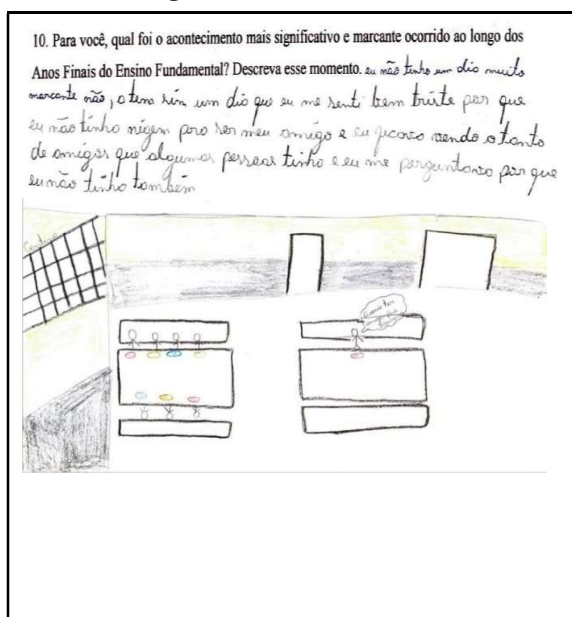 10. Para você, qual foi o acontecimento mais significativo e marcante ocorrido ao longo dos
Anos Finais do Ensino Fundamental? Descreva esse momento. eu não tenho um dia muito
marcante não, a tem sim um dia que eu me senti bem triste por que
eu não tinha nigem para ser meu amigo e eu ficava vendo o tanto
de amigos que algumas pessoas tinha e eu me perguntava por que
eu não tinha também